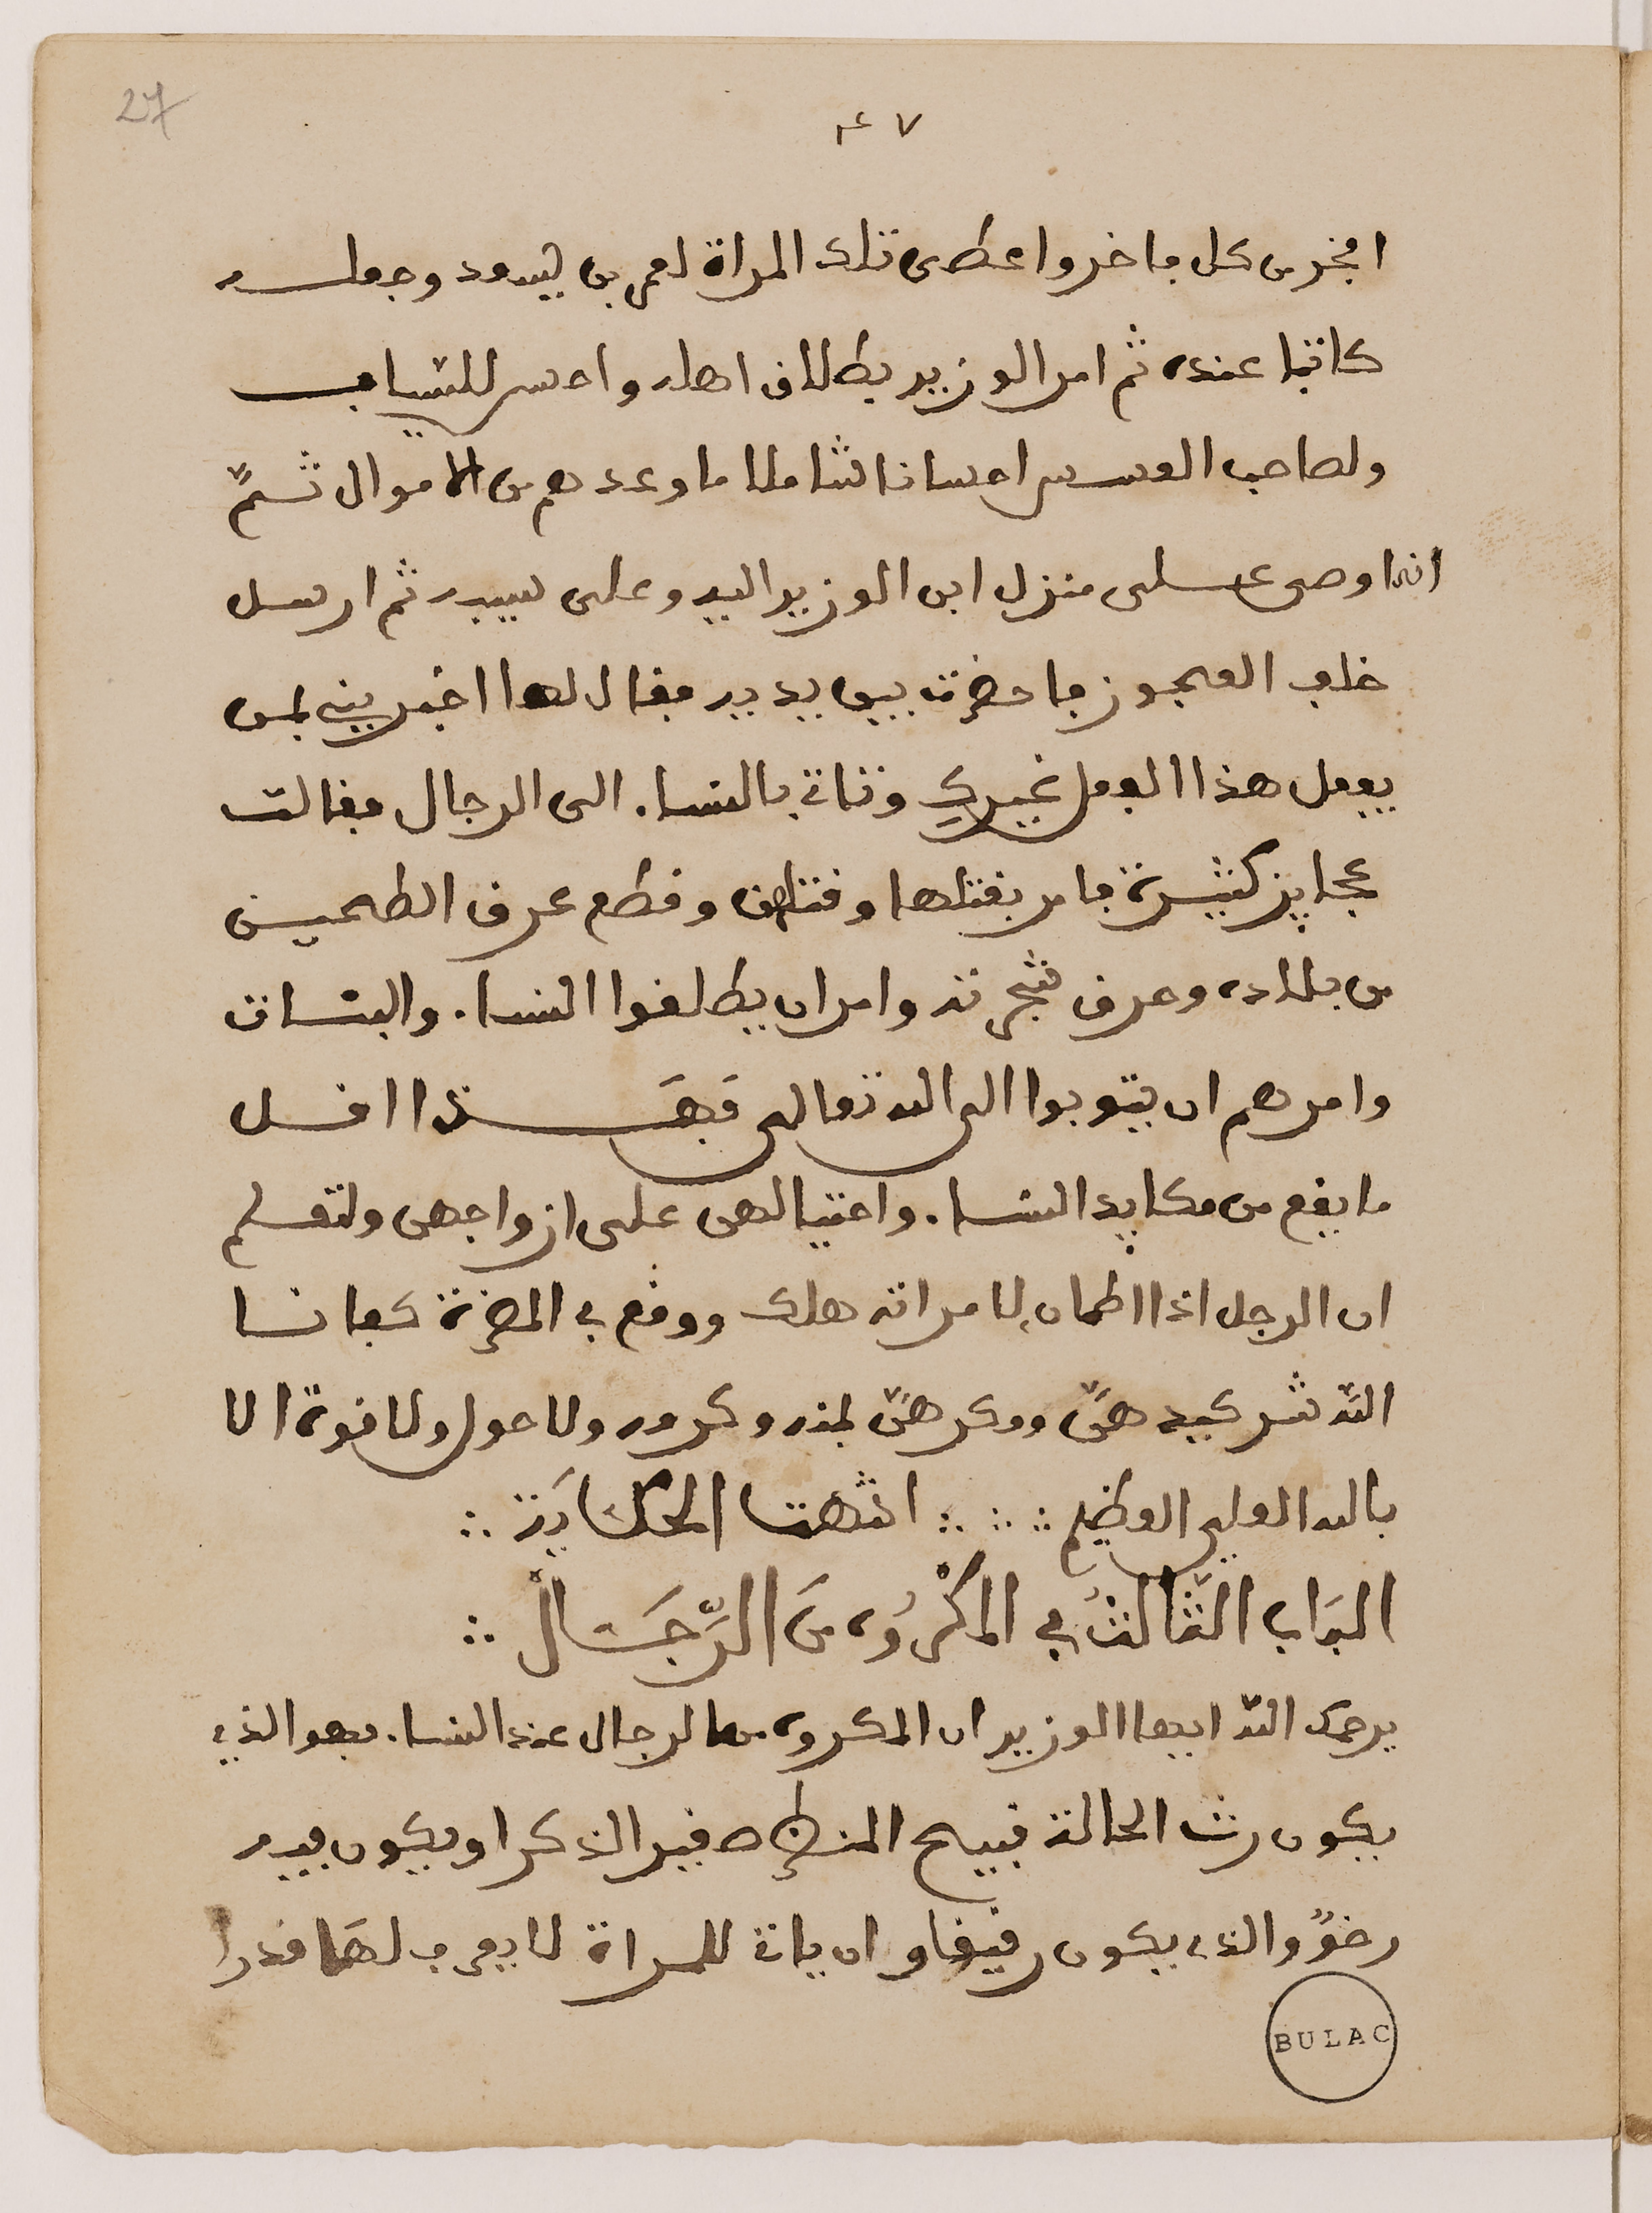 27
٤٧
افخر من كل فاخر واعطى تلك المراة لعمر بن يسعد وجعله
كاتبا عنده ثم امر الوزير يطلاق اهله واحسر للشاب
ولصاحب العسس احسانا شاملا ما وعدهم من الاموال ثمّ
انه اوصى على منزل ابن الوزير اليه وعلى سيده ثم ارسل
خلف العجوز فاحضرت بين يديه فقال لها اخبريني بمن
يفعل هذا الفعل غيركِ وتاتي بالنسا. الى الرجال فقالت
عجايز كثيرة فامر بقتلها وقتلهن وقطع عرق الطحين
من بلاده وحرق شجرته وامر ان يطلقوا النسا. والبنات
وامرهم ان يتوبوا الى الله تعالى فهذا اقل
ما يقع من مكايد النسا. واحتيالهن على ازواجهن ولتعلم
ان الرجل اذا اطمان لامراته هلك ووقع في المضرة كفانا
الله شر كيدهنّ ومكرهنّ بمنه وكرمه ولا حول ولا قوة الا
بالله العلي العظيم ∴ ∴ ∴ انتهت الحكاية ∴
البَاب الثَّالثُ في المَكْرُوه مَن الرّجَال ∴
يرحمك الله ايها الوزير ان المكروه من الرجال عند النسا. فهو الذي
يكون رث الحالة قبيح المنظر صغير الذكر او يكون فيه
رخوٌ والذي يكون رقيقا وان ياتي للمراة لا يعرف لها قدرا
BULAC